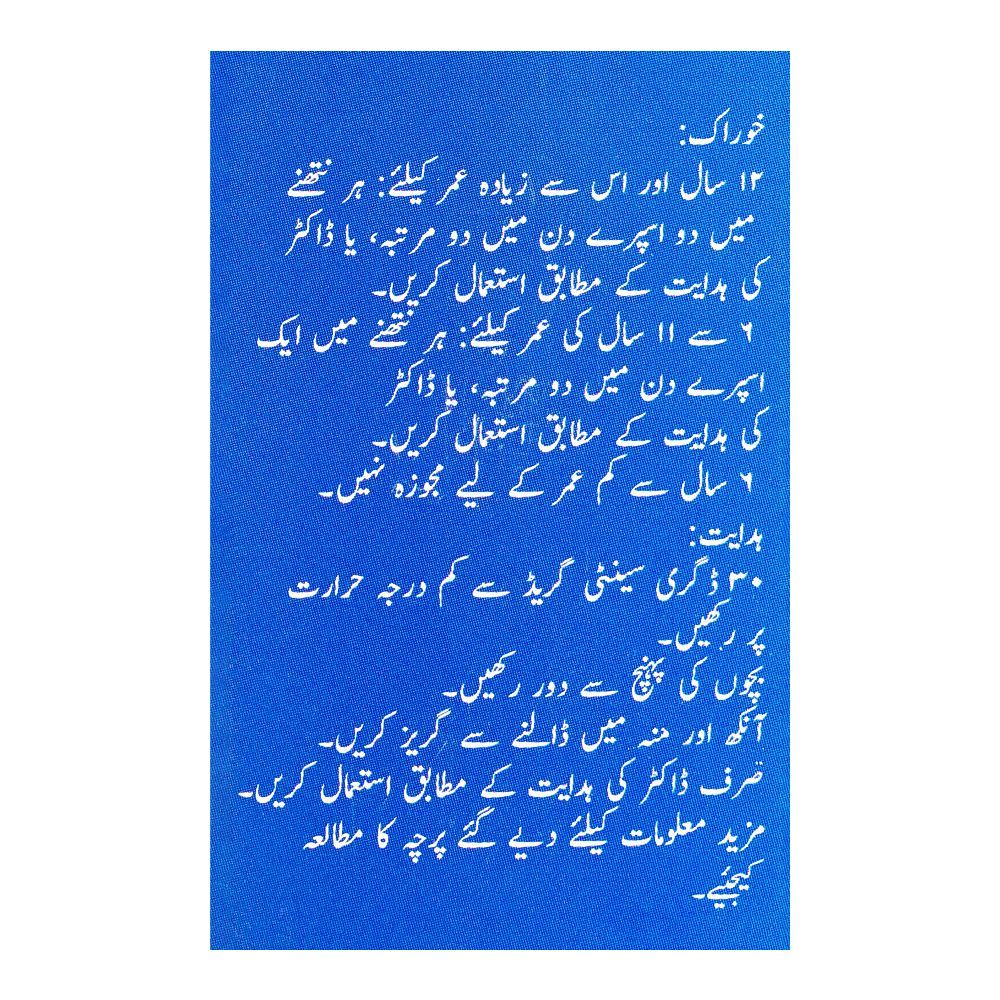 خوراک:
۱۲ سال اور اس سے زیادہ عمر کیلئے: ہر نتھنے
میں دو اسپرے دن میں دو مرتبہ، یا ڈاکٹر
کی ہدایت کے مطابق استعمال کریں۔
۶ سے ۱۱ سال کی عمر کیلئے: ہر نتھنے میں ایک
اسپرے دن میں دو مرتبہ، یا ڈاکٹر
کی ہدایت کے مطابق استعمال کریں۔
۶ سال سے کم عمر کے لیے مجوزہ نہیں۔
ہدایت:
۳۰ ڈگری سینٹی گریڈ سے کم درجہ حرارت
پر رکھیں۔
بچوں کی پہنچ سے دور رکھیں۔
آنکھ اور منہ میں ڈالنے سے گریز کریں۔
صرف ڈاکٹر کی ہدایت کے مطابق استعمال کریں۔
مزید معلومات کیلئے دیے گئے پرچہ کا مطالعہ
کیجئیے۔